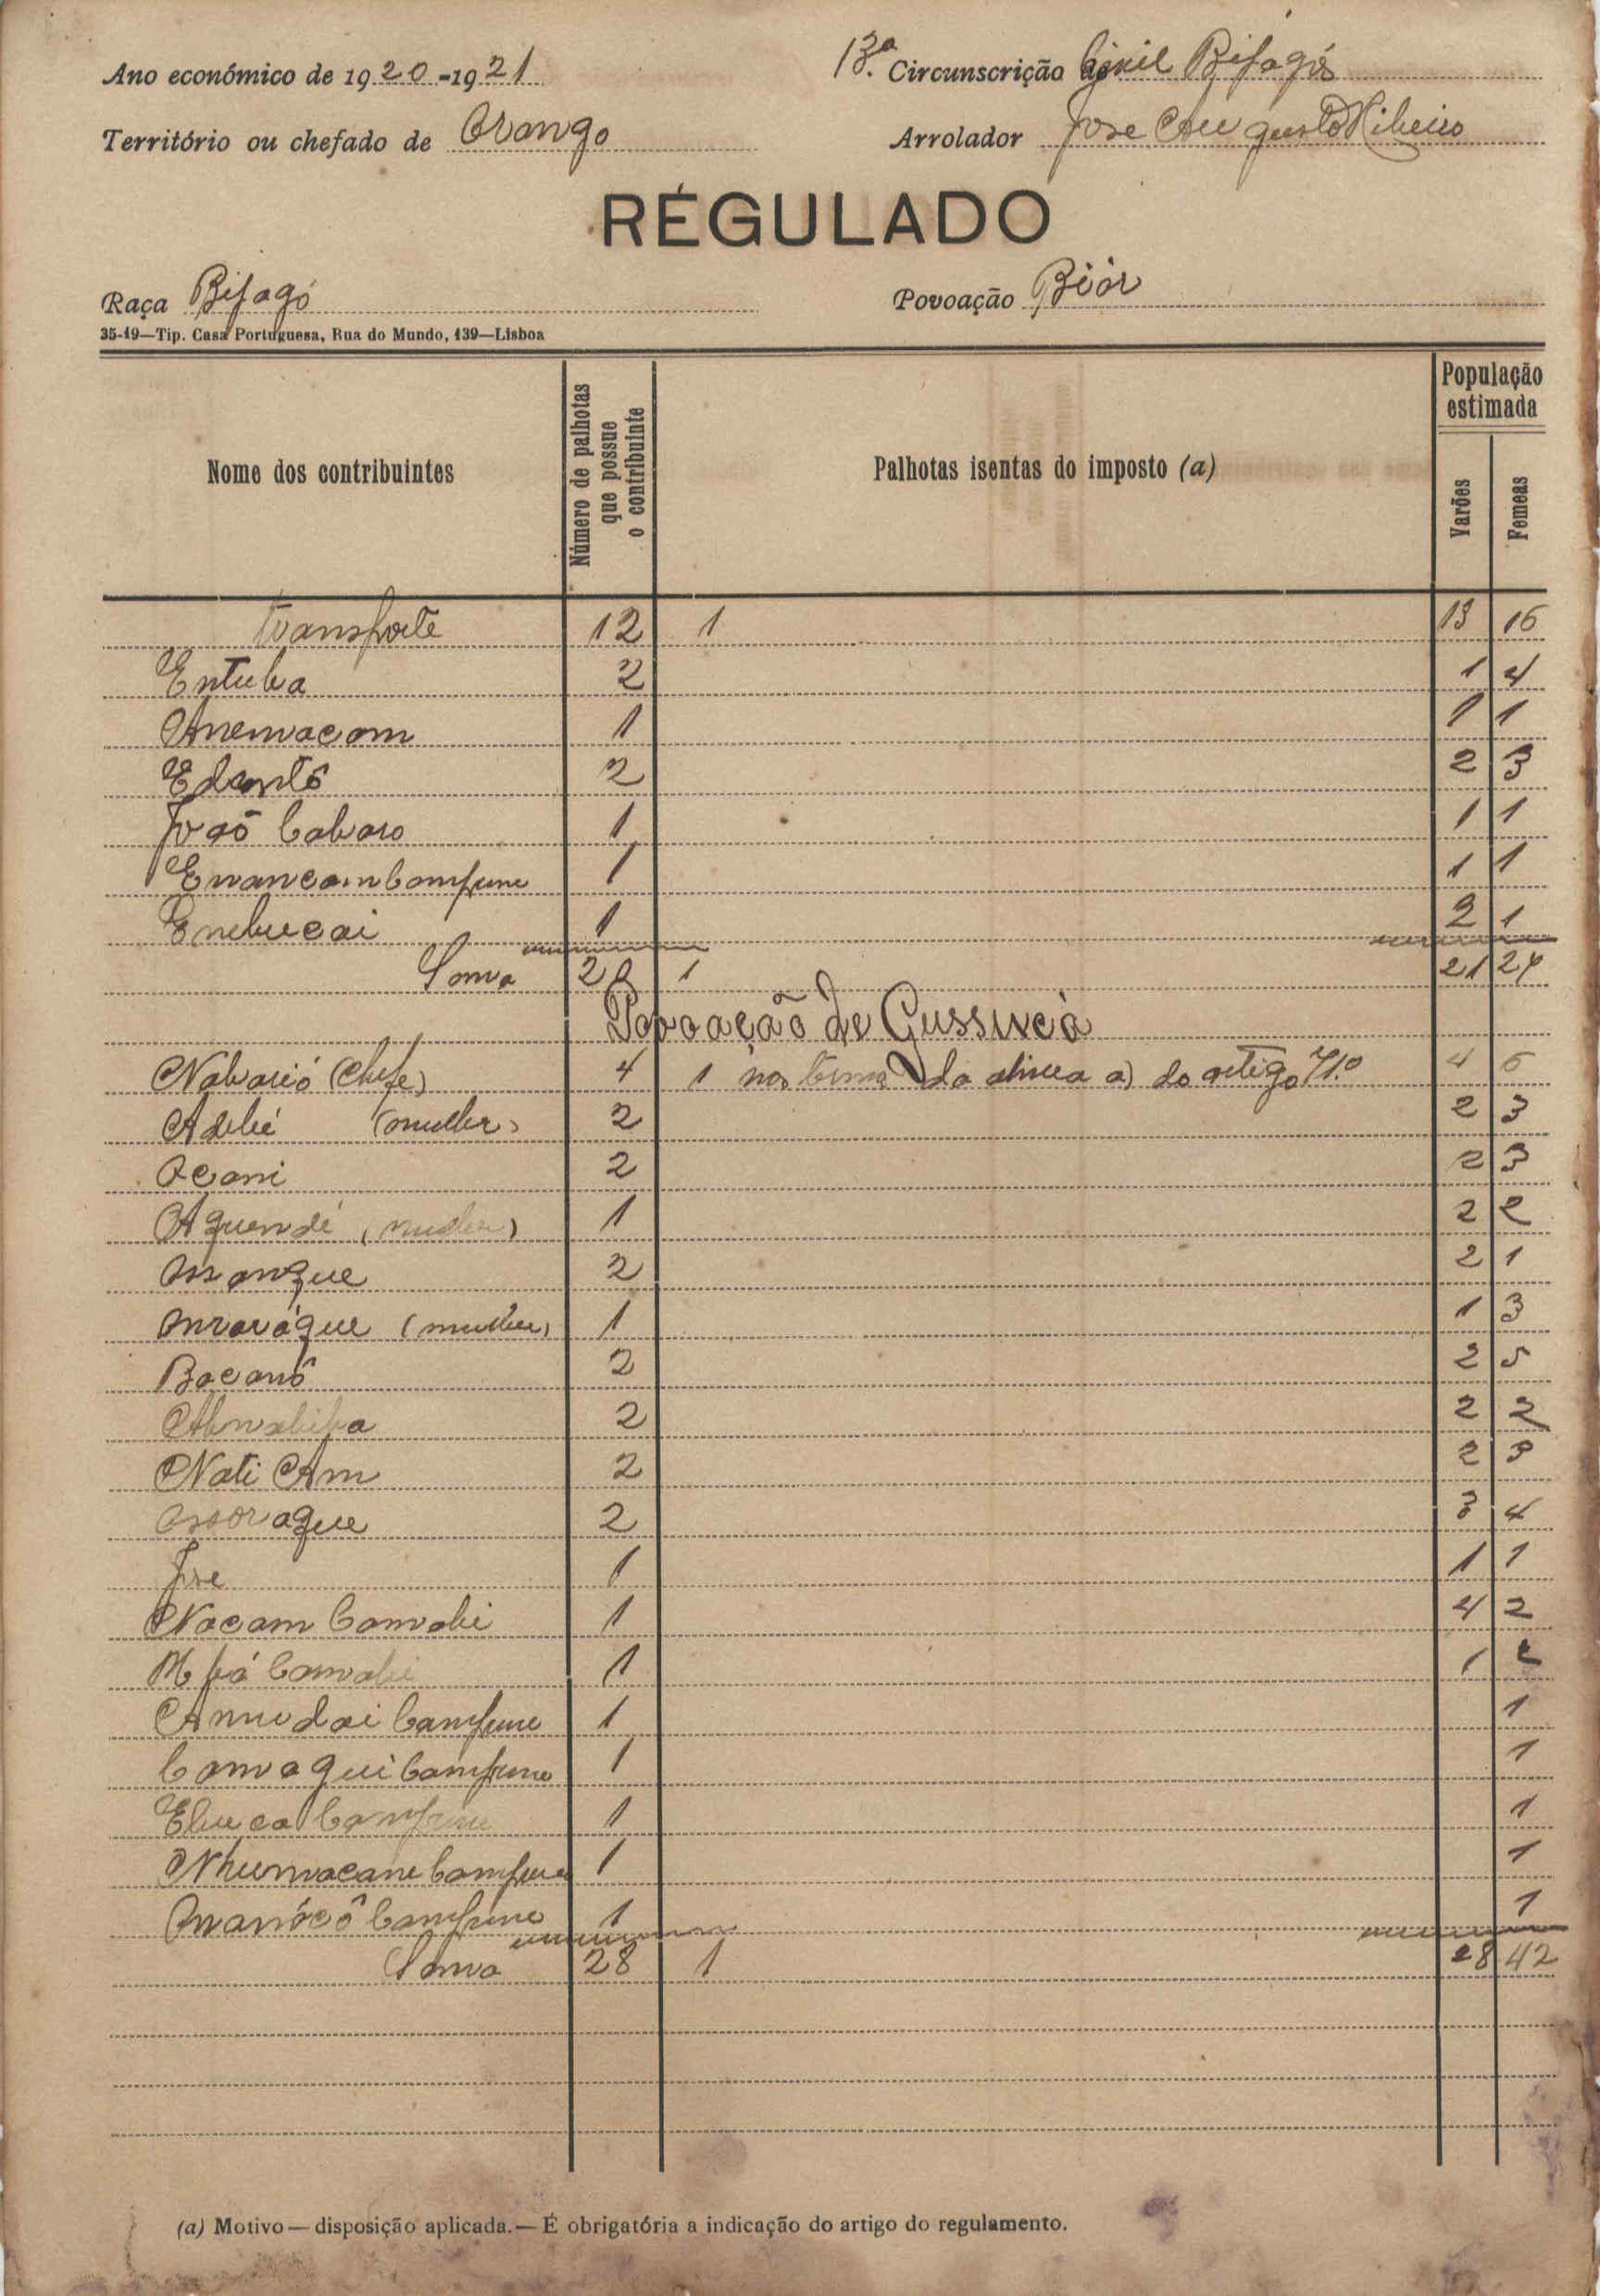 Ano económico de 1920-1921
13.ª Circunscrição Civil Bijagós
Território ou chefado de Orango
Arrolador Jose Augusto Ribeiro
RÉGULADO
Raça Bijagó
Povoação Biòr
35-19—Tip. Casa Portuguesa, Rua do Mundo, 139—Lisboa
Nome dos contribuintes
Número de palhotas que possue o contribuinte
Palhotas isentas do imposto (a)
População estimada
Varões
Femeas
Transporte 12 1 13 16
Entuba 2 1 4
Anemacam 1 1 1
Edontô 2 2 3
João Cabaro 1 1 1
Emancam Camfune 1 1 1
Enebucai 1 2 1
Soma 20 1 21 27
Povoação de
Nabarió (Chefe) 4 1 nos termos da alinea a) do artigo 71.º 4 6
Adebé (mulher) 2 2 3
Ocani 2 2 3
Aquendé (mulher) 1 2 2
Manque 2 2 1
(mulher) 1 1 3
Bacanô 2 2 5
2 2 2
Nati Am 2 2 3
2 3 4
Jose 1 1 1
Nacam Camabi 1 4 2
Camabi 1 1 2
Anudai Camfune 1 1
Camaqui Camfune 1 1
Ebuca Camfune 1 1
Nhumacane Camfune 1 1
Manócô Camfune 1 1
Soma 28 1 28 42
(a) Motivo—disposição aplicada.—É obrigatória a indicação do artigo do regulamento.